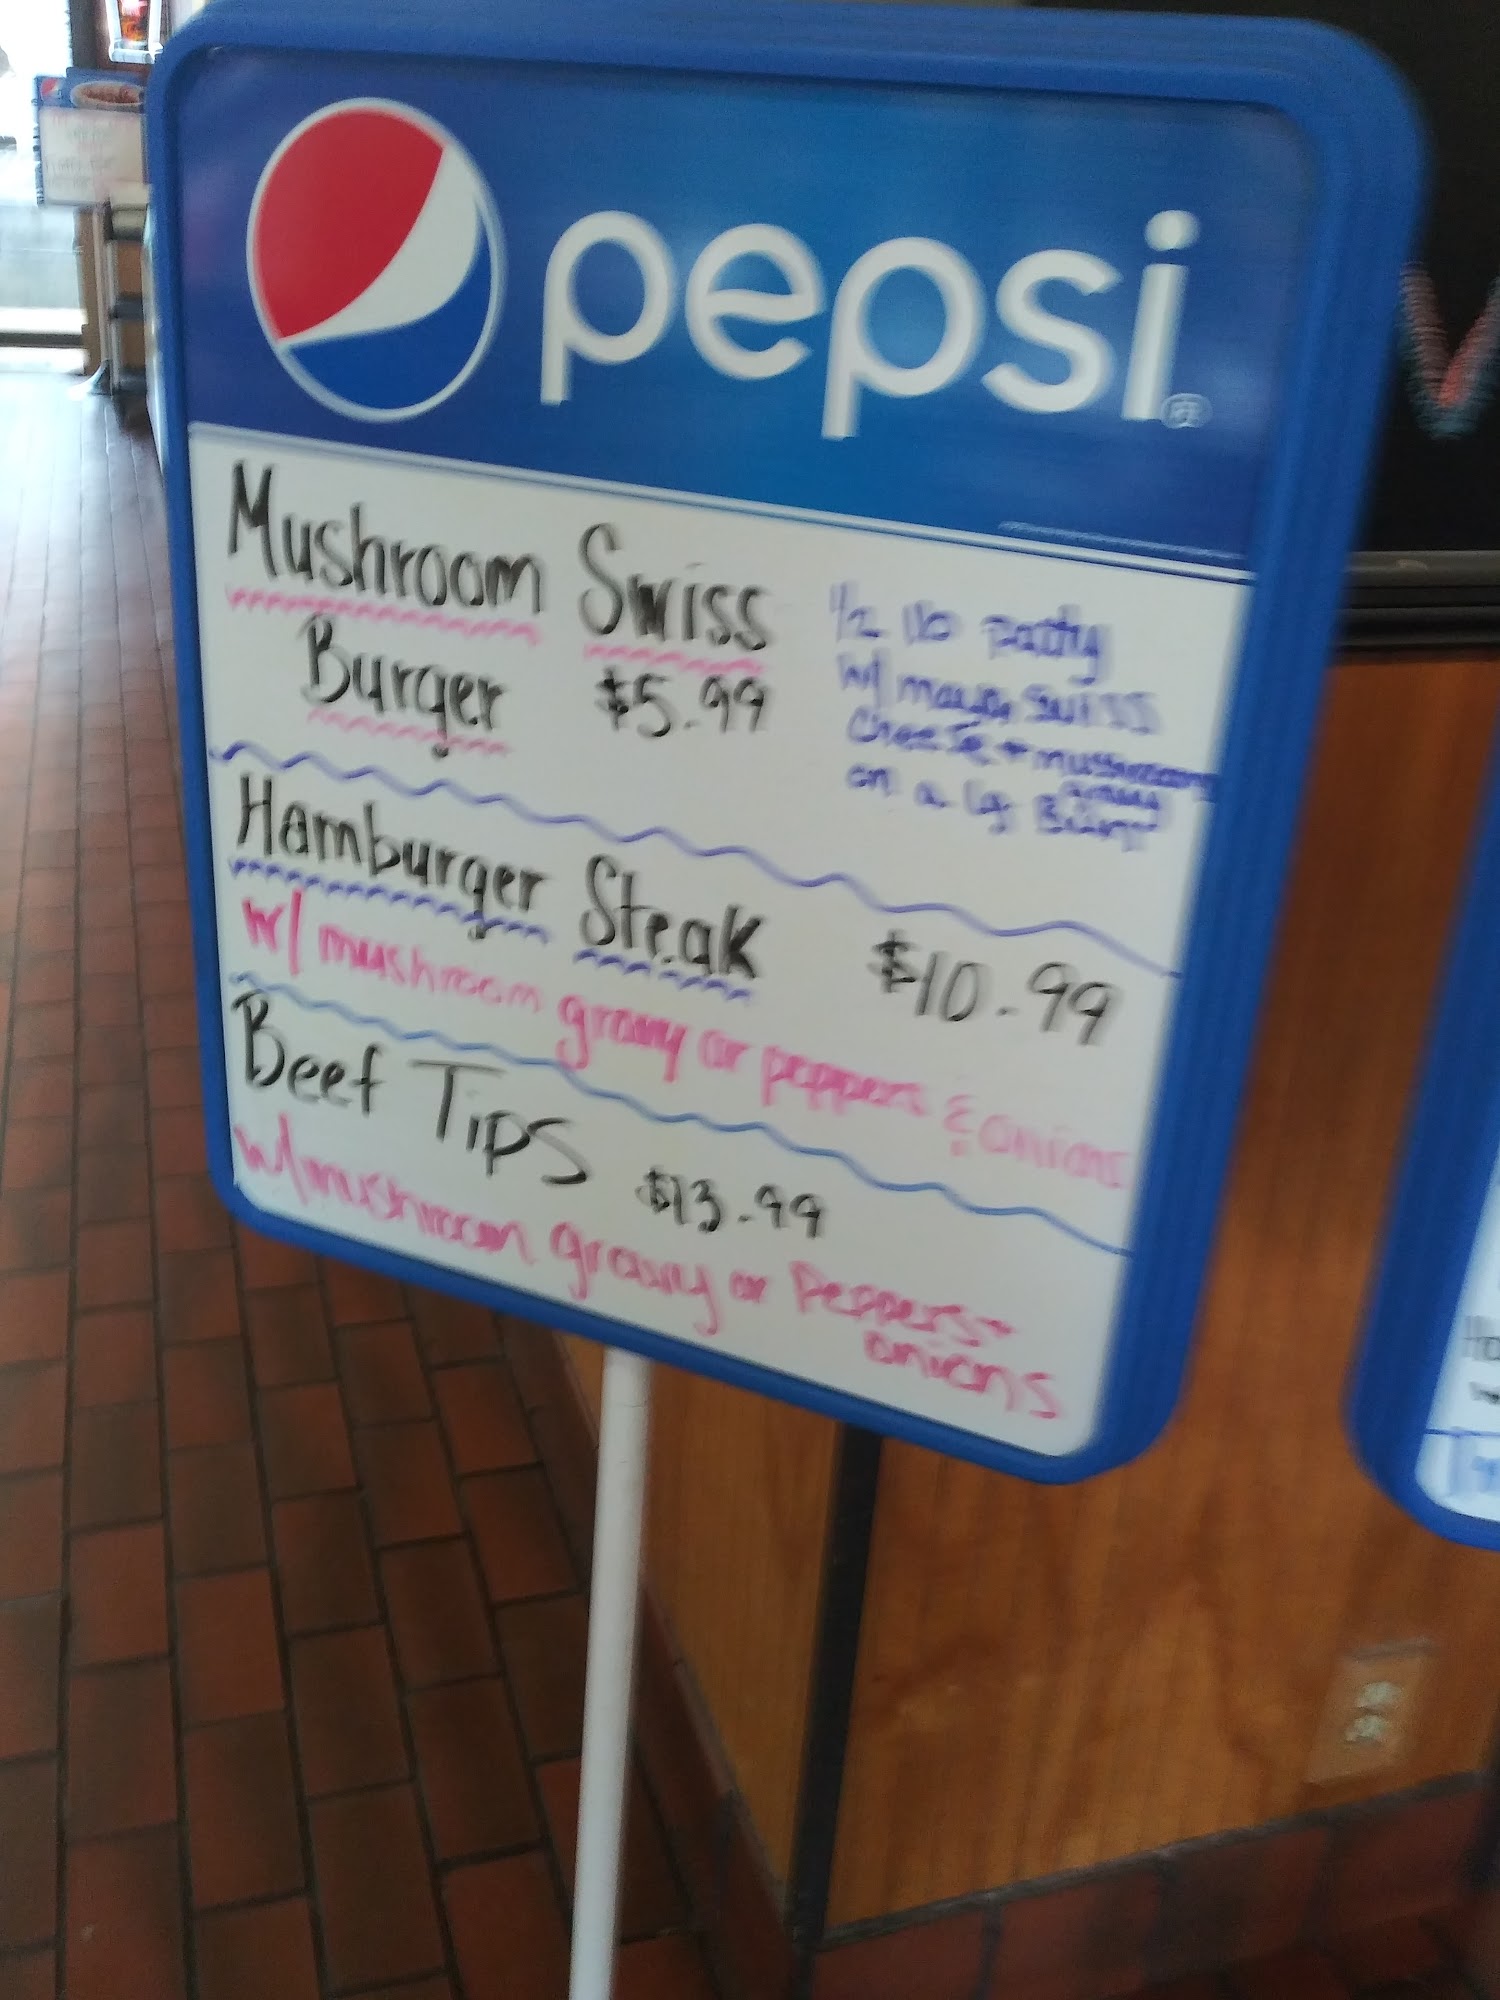 pepsi
Mushroom Swiss
Burger $5.99
1/2 lb patty
w/ mayo, swiss
Cheese + mushroom
gravy
on a lg Bun
Hamburger Steak $10.99
w/ mushroom gravy or peppers & onions
Beef Tips $13.99
w/ mushroom gravy or Peppers +
onions